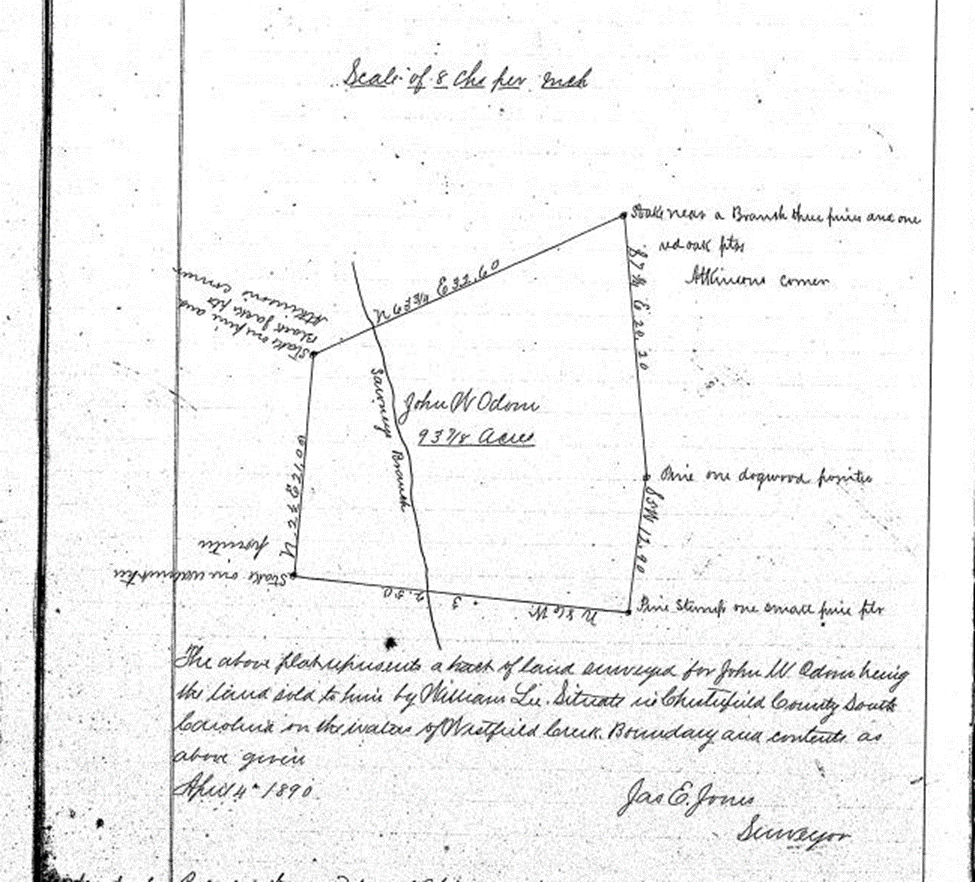 Scale of 8 Chs per Inch
Stake near a Branch three pines and one
red oak ptrs
Atkinsons corner
N 63 3/4 E 32.60
E 20.20
Stake one pine and
Black Jack ptr
Atkinson's corner
Sawneys Branch
John W Odom
93 7/8 Acres
Pine one dogwood pointer
S 5 W 12.90
N 2 3 E 21.00
Stake one
pointer
N 86 W 3 2.50
Pine Stump one small pine ptr
The above plat represents a tract of land surveyed for John W. Odom being
the land sold to him by William Lee. Situate in Chesterfield County South
Carolina on the waters of Westfield Creek. Boundary and contents as
above given
April 4th 1890
Jas E. Jones
Surveyor